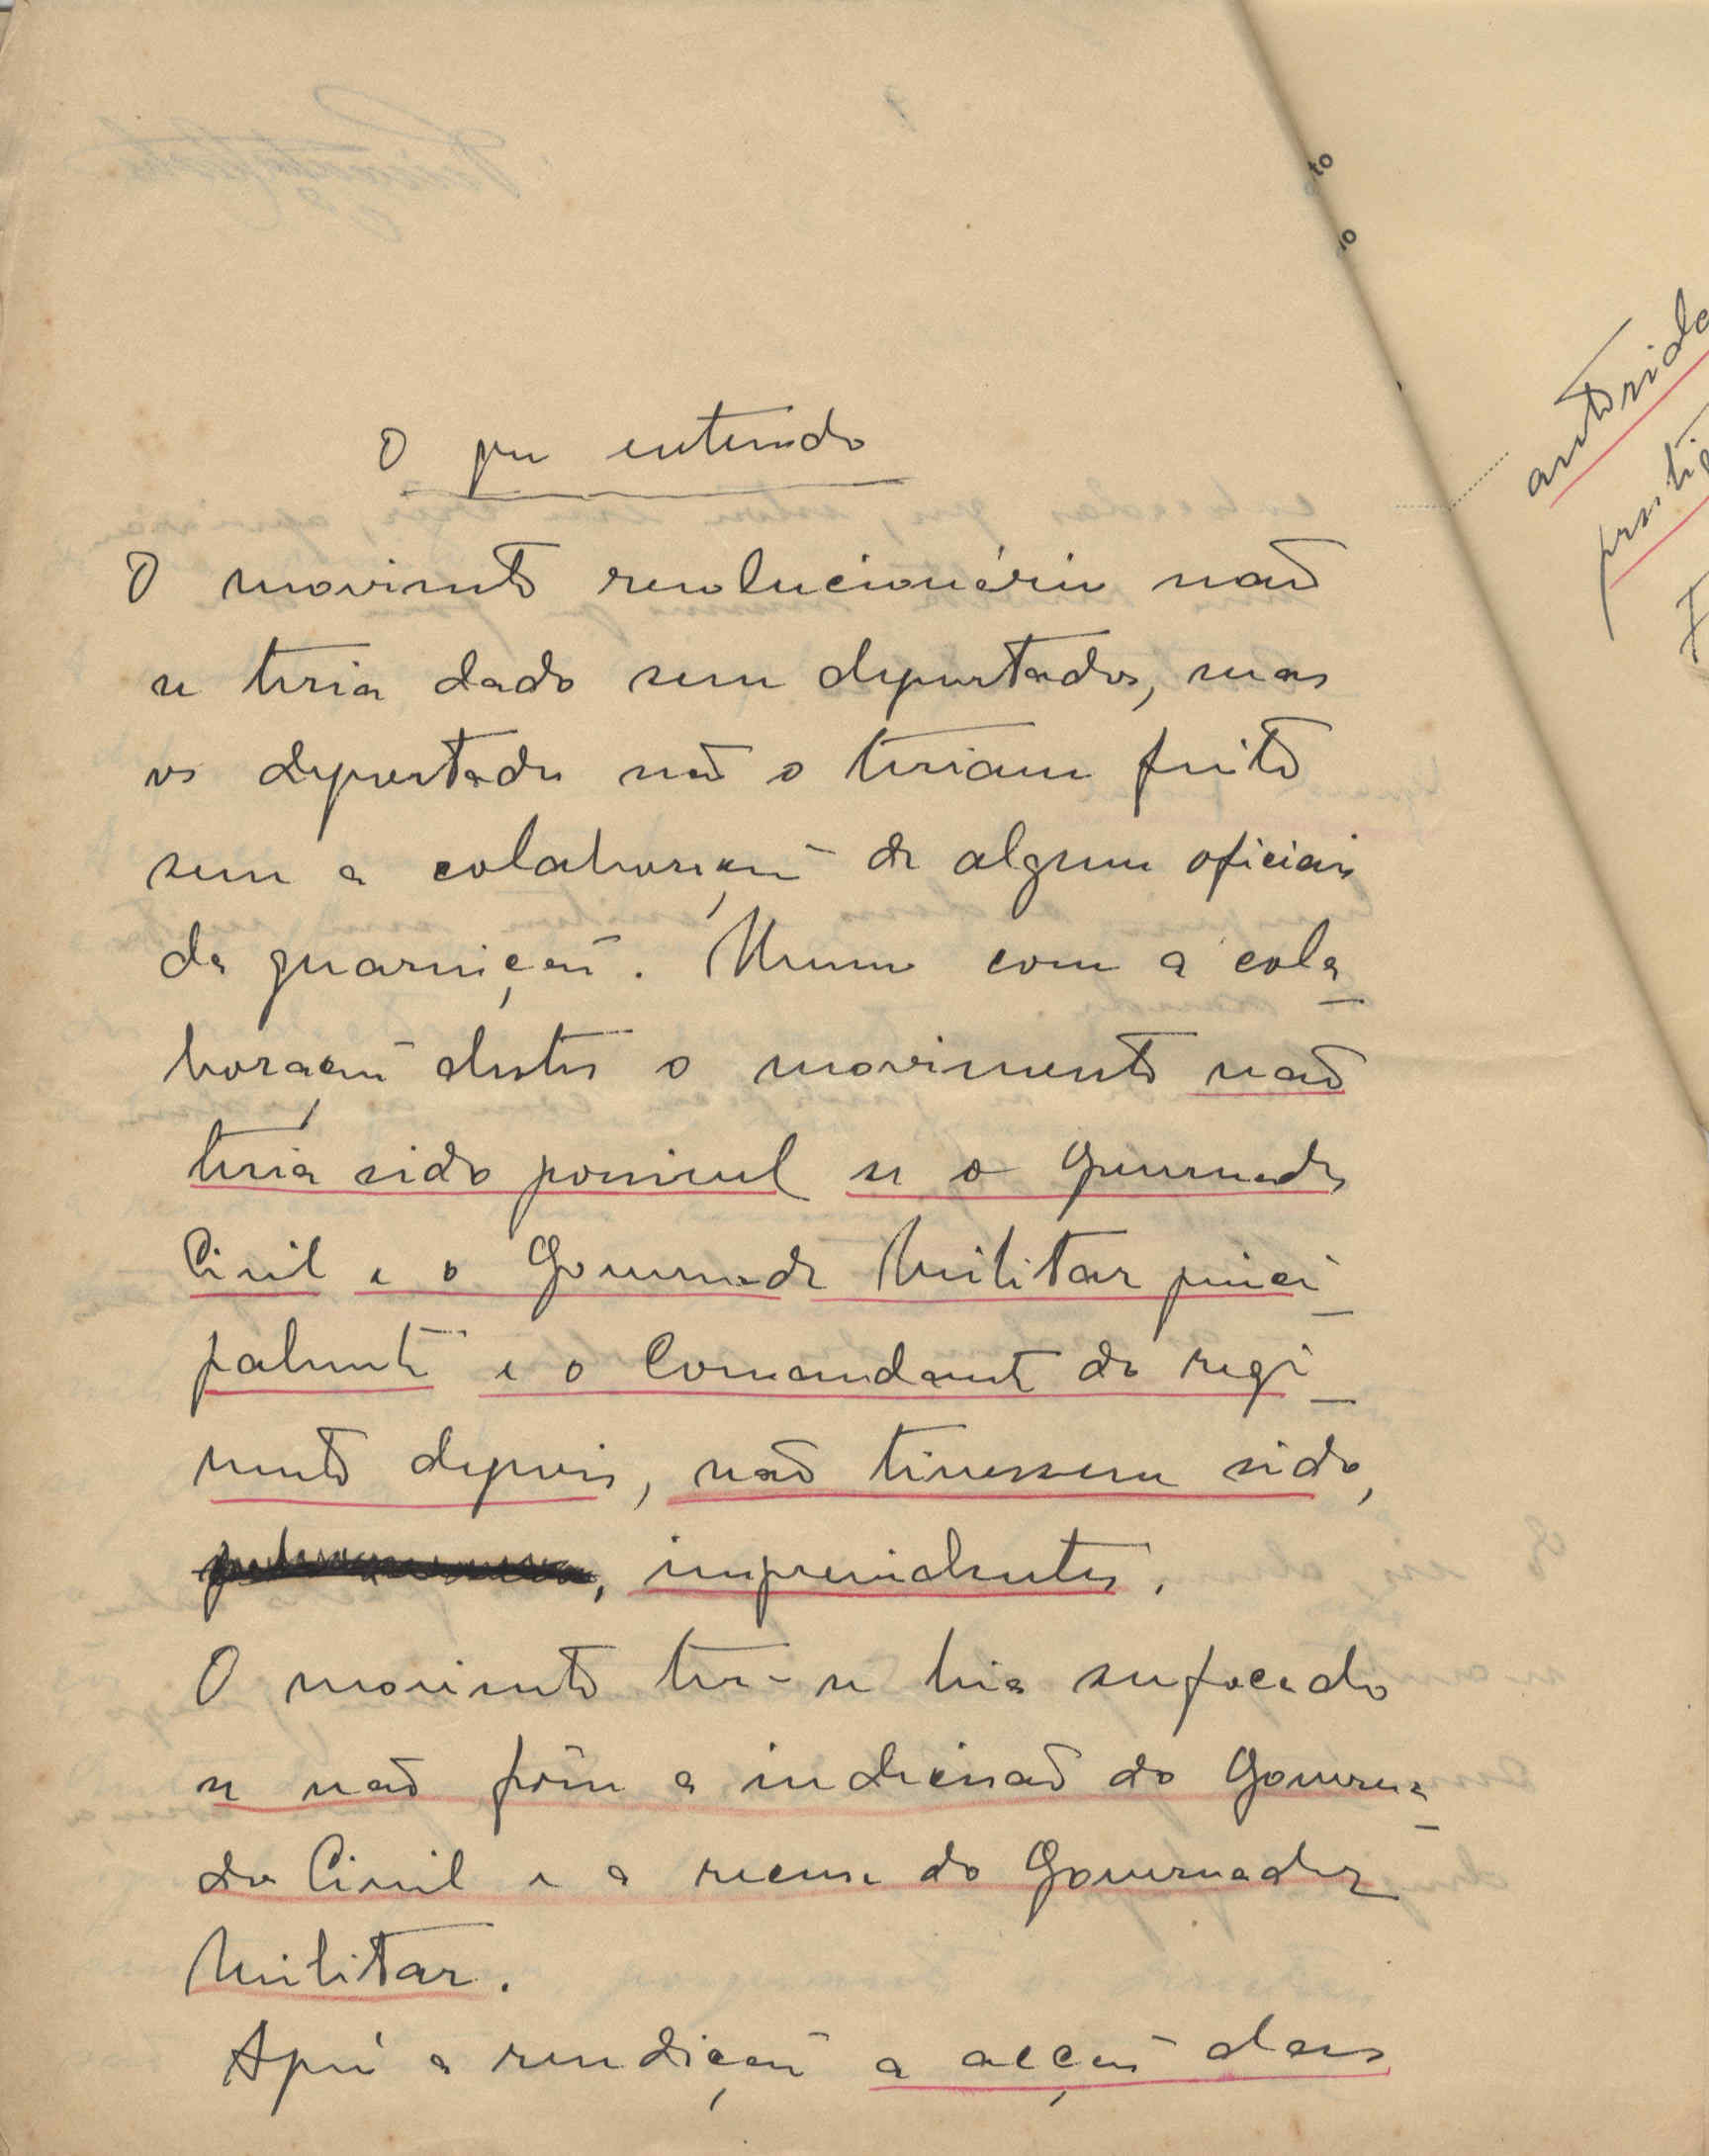 O que entendo
O movimento revolucionário não
se teria dado sem deportados, mas
os deportados não o teriam feito
sem a colaboração de alguns oficiais
da guarnição. Mesmo com a cola_
boração destes o movimento não
teria sido possivel se o Governador
Civil e o Governador Militar princi_
palmente e o Comandante do regi_
mento depois, não tivessem sido,
, imprevidentes.
O movimento ter-se hia sufocado
se não fôra a indecisão do Governa_
dor Civil e a recusa do Governador
Militar.
Após a rendição a acção das
to
lo
autorida
prestig